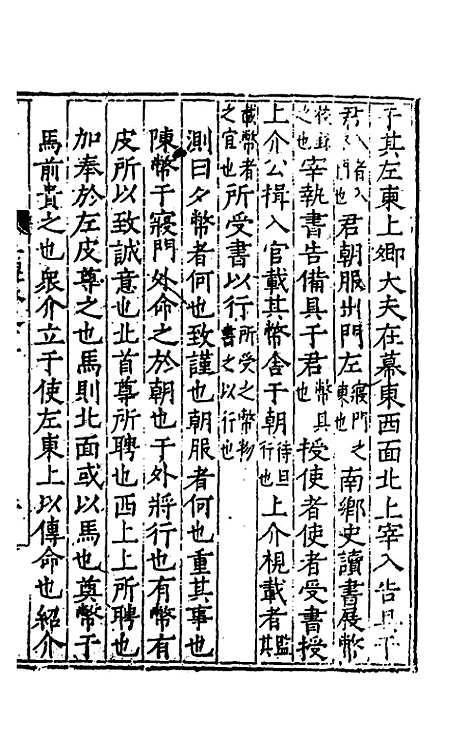 于其左東上卿大夫在幕東西面北上宰入告具于
君 君朝服出門左寢門之東也南鄉史讀書展幣
宰執書告備具于君幣具也授使者使者受書授
上介公揖入官載其幣舍于朝待旦行也上介視載者監
載幣者之宜也所受書以行所受之幣物書之以行也
測曰夕幣者何也致謹也朝服者何也重其事也
陳幣于寢門外命之於朝也于外將行也有幣有
皮所以致誠意也北首尊所聘也西上上所聘也
加奉於左皮尊之也馬則北面或以馬也奠幣于
馬前貴之也衆介立于使左東上以傳命也紹介